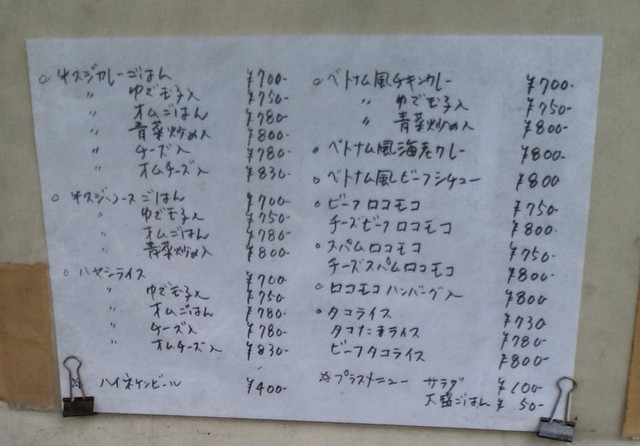 ○ 牛スジカレーごはん ¥700-
〃 ゆで玉子入 ¥750-
〃 オムごはん ¥780-
〃 青菜炒め入 ¥800-
〃 チーズ入 ¥780-
〃 オムチーズ入 ¥830-
○ 牛スジソースごはん ¥700-
〃 ゆで玉子入 ¥750-
〃 オムごはん ¥780-
〃 青菜炒め入 ¥800-
○ ハヤシライス ¥700-
〃 ゆで玉子入 ¥750-
〃 オムごはん ¥780-
〃 チーズ入 ¥780-
〃 オムチーズ入 ¥830-
☆ ハイネケンビール ¥400-
○ ベトナム風チキンカレー ¥700-
〃 ゆで玉子入 ¥750-
〃 青菜炒め入 ¥800-
○ ベトナム風海老カレー ¥800-
○ ベトナム風ビーフシチュー ¥800
○ ビーフロコモコ ¥750
チーズビーフロコモコ ¥800-
○ スパムロコモコ ¥750-
チーズスパムロコモコ ¥800-
○ ロコモコハンバーグ入 ¥800-
○ タコライス ¥730-
タコたまライス ¥780-
ビーフタコライス ¥800-
☆プラスメニュー サラダ ¥100-
大盛ごはん ¥50-